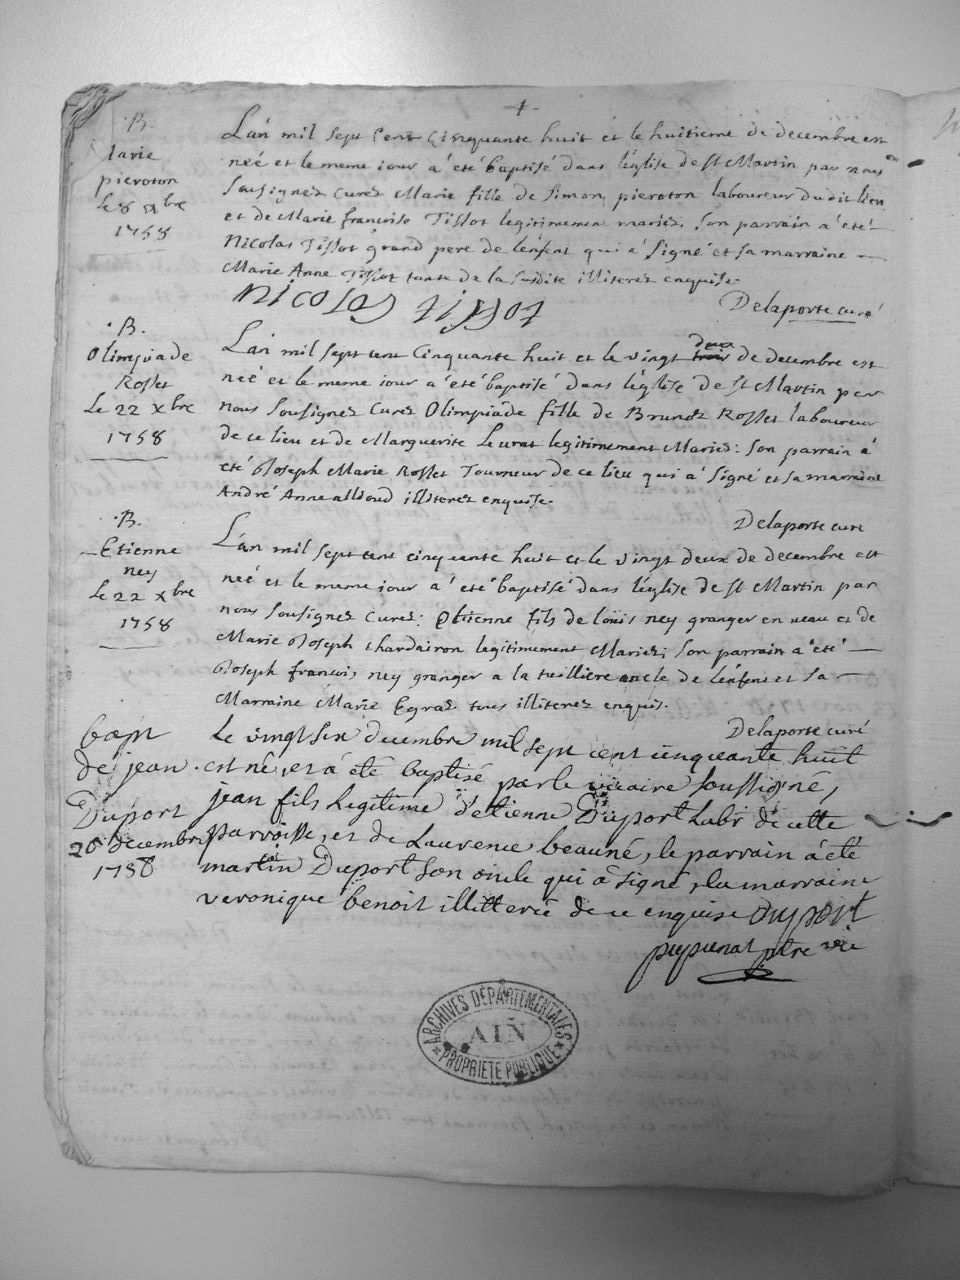 .B.
Marie
pieroton
le 8 xbre
1758
L'an mil sept Cent Cinquante huit et le huitieme de decembre est
neé et le meme iour a été baptisé dans l'église de st Martin par nous
Sousignez Curez Marie fille de Simon pieroton laboureur dudit lieu
et de Marie francoise Tissot legitimement mariéz, Son parrain a été
Nicolas Tissot grand pere de lenfent qui a Signé et sa marraine
Marie Anne Tissot tante de la susdite illiterez enquise.
nicolas tissot
Delaporte curé
.B.
Olimpiade
Rosset
Le 22 xbre
1758
L'an mil sept cent Cinquante huit et le vingt deux de decembre est
neé et le meme iour a été baptisé dans l'église de st Martin par
nous Sousignez Curez Olimpiade fille de Brunez Rosset laboureur
de ce lieu et de Marguerite Leurat legitimement Mariés: Son parrain a
été Joseph Marie Rosset Tourneur de ce lieu qui a Signé et sa marraine
André Anne alloud illiterez enquise.
Delaporte curé
.B.
Etienne
ney
le 22 xbre
1758
L'an mil sept cent cinquante huit et le vingt deux de decembre est
neé et le meme iour a été baptisé dans l'église de st Martin par
nous Sousignez Curez: Etienne fils de loüis ney granger en et de
Marie Joseph chardairon legitimement Mariez; Son parrain a été
Joseph francois ney granger a la tuilliere oncle de lenfent et Sa
Marraine Marie Egraz tous illiterez enquis.
Delaporte curé
bapt
de jean
Duport
26 decembre
1758
Le vingt six decembre mil sept cent cinquante huit
est né, et a été baptisé par le vicaire soussigné,
jean fils legitime d'etienne Duport Labr de cette
parroisse, et de Laurence beauné, le parrain a été
martin Duport son oncle qui a signé, la marraine
veronique benoit illitterée de ce enquise Duport
ptre vic
ARCHIVES DÉPARTEMENTALES
AIN
PROPRIÉTÉ PUBLIQUE